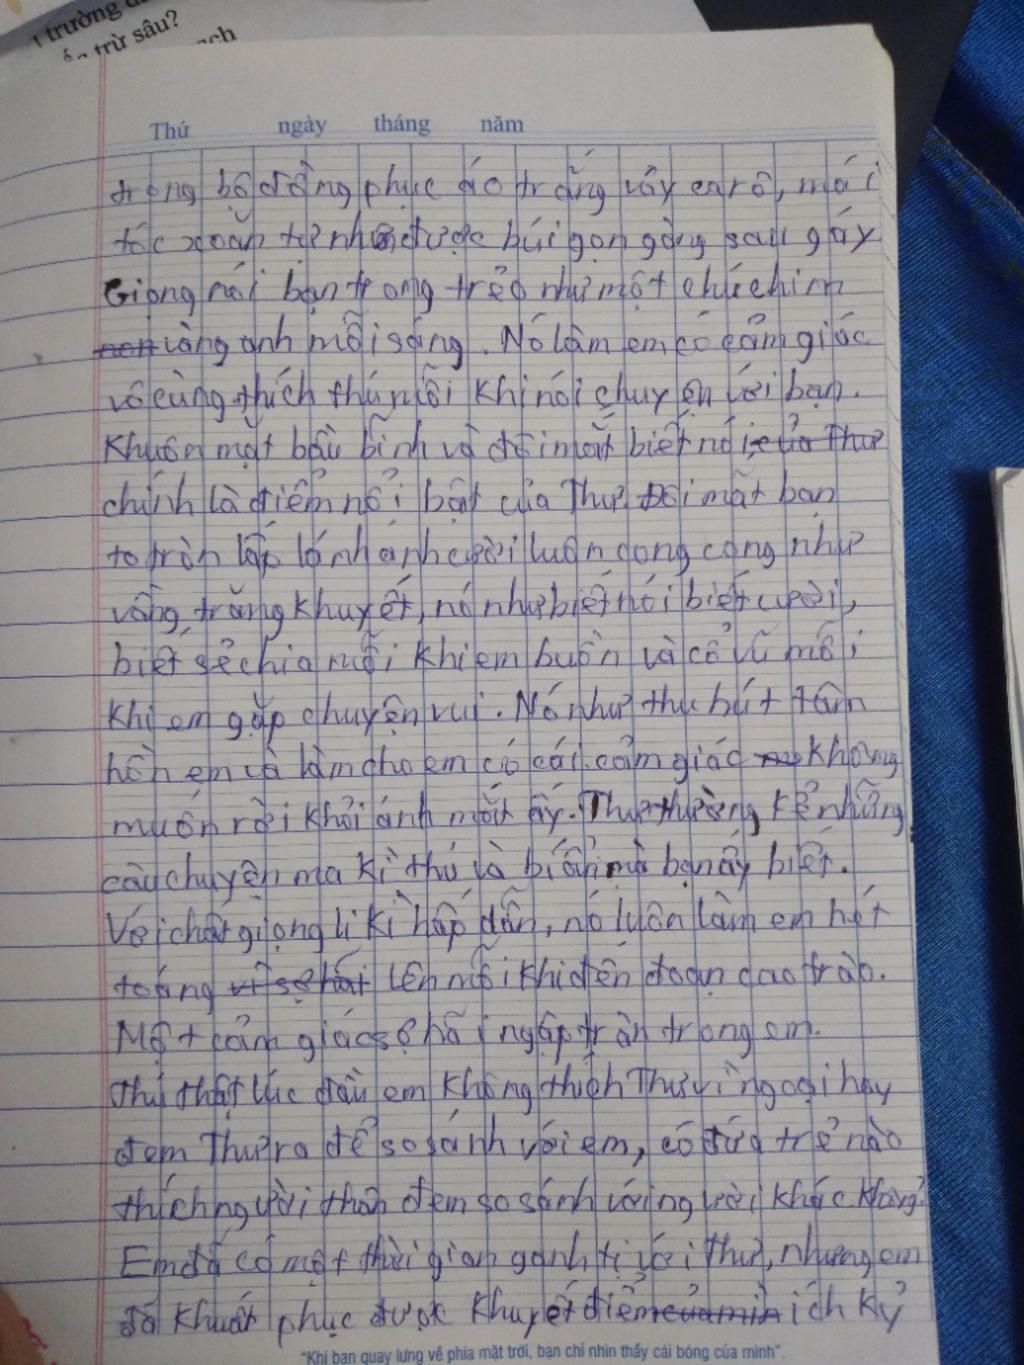 trường
trừ sâu?
ạch
Thứ ngày tháng năm
trong bộ đồng phục áo trắng váy ca rô, mái
tóc xoăn tự nhiên được búi gọn gàng sau gáy
Giọng nói bạn trong trẻo như một chú chim
vàng anh mỗi sáng. Nó làm em có cảm giác
vô cùng thích thú mỗi khi nói chuyện với bạn.
Khuôn mặt bầu bĩnh và đôi mắt biết nói của Thư
chính là điểm nổi bật của Thư. Đôi mắt bạn
to tròn lấp lánh ánh cười luôn cong cong như
vầng trăng khuyết, nó như biết nói biết cười,
biết sẻ chia mỗi khi em buồn và cổ vũ mỗi
khi em gặp chuyện vui. Nó như thu hút tâm
hồn em và làm cho em có cái cảm giác không
muốn rời khỏi ánh mắt ấy. Thư thường kể những
câu chuyện ma kì thú và bí ẩn mà bạn ấy biết.
Với chất giọng li kì hấp dẫn, nó luôn làm em hét
toáng vì sợ hãi lên mỗi khi đến đoạn cao trào.
Một cảm giác sợ hãi ngập tràn trong em.
Thú thật lúc đầu em không thích Thư vì ngoại hay
đem Thư ra để so sánh với em, có đứa trẻ nào
thích người thân đem so sánh với người khác không?
Em đã có một thời gian ganh tị với Thư, nhưng em
đã khuất phục được khuyết điểm của mình ích kỷ
"Khi bạn quay lưng về phía mặt trời, bạn chỉ nhìn thấy cái bóng của mình".